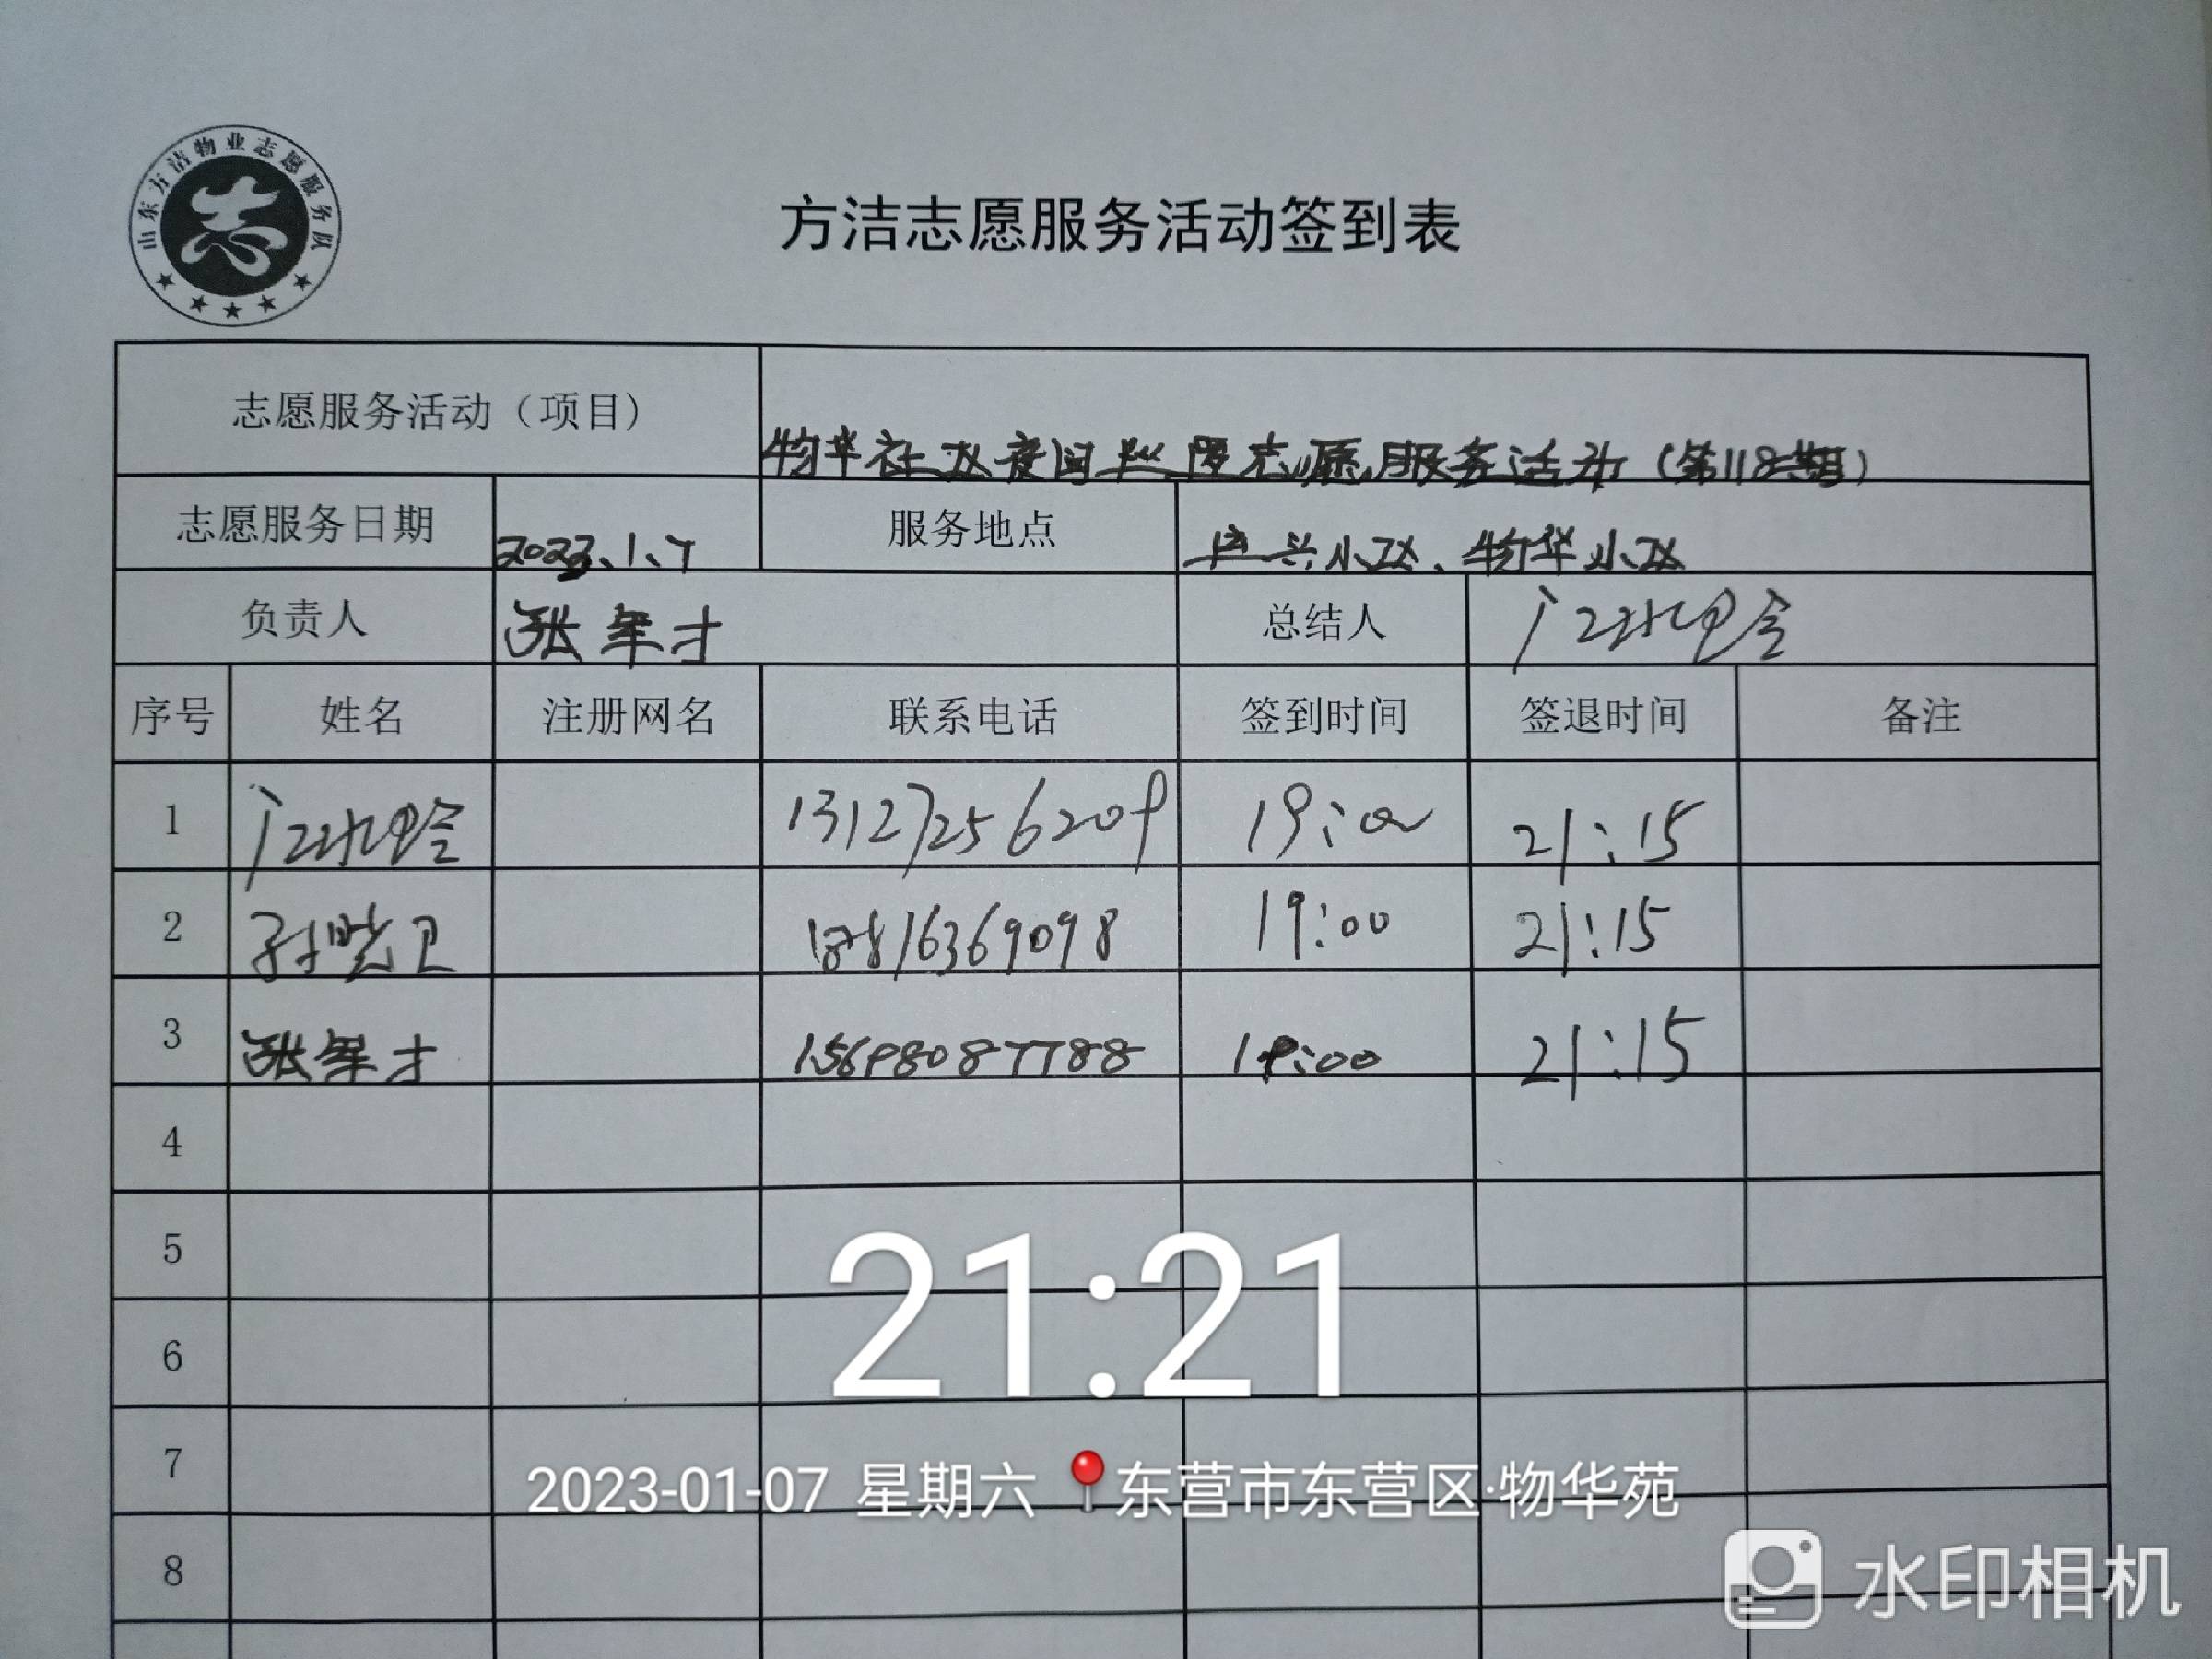 山东方洁物业志愿服务队
志
方洁志愿服务活动签到表
志愿服务活动（项目） 物华社区夜间巡逻志愿服务活动（第118期）
志愿服务日期 2023、1、7 服务地点 兴小区、物华小区
负责人 张军才 总结人
序号 姓名 注册网名 联系电话 签到时间 签退时间 备注
1 13127256209 19:00 21:15
2 孙晓卫 19:00 21:15
3 张军才 15698087788 19:00 21:15
4
5
6
7
8
21:21
2023-01-07 星期六 东营市东营区·物华苑
水印相机